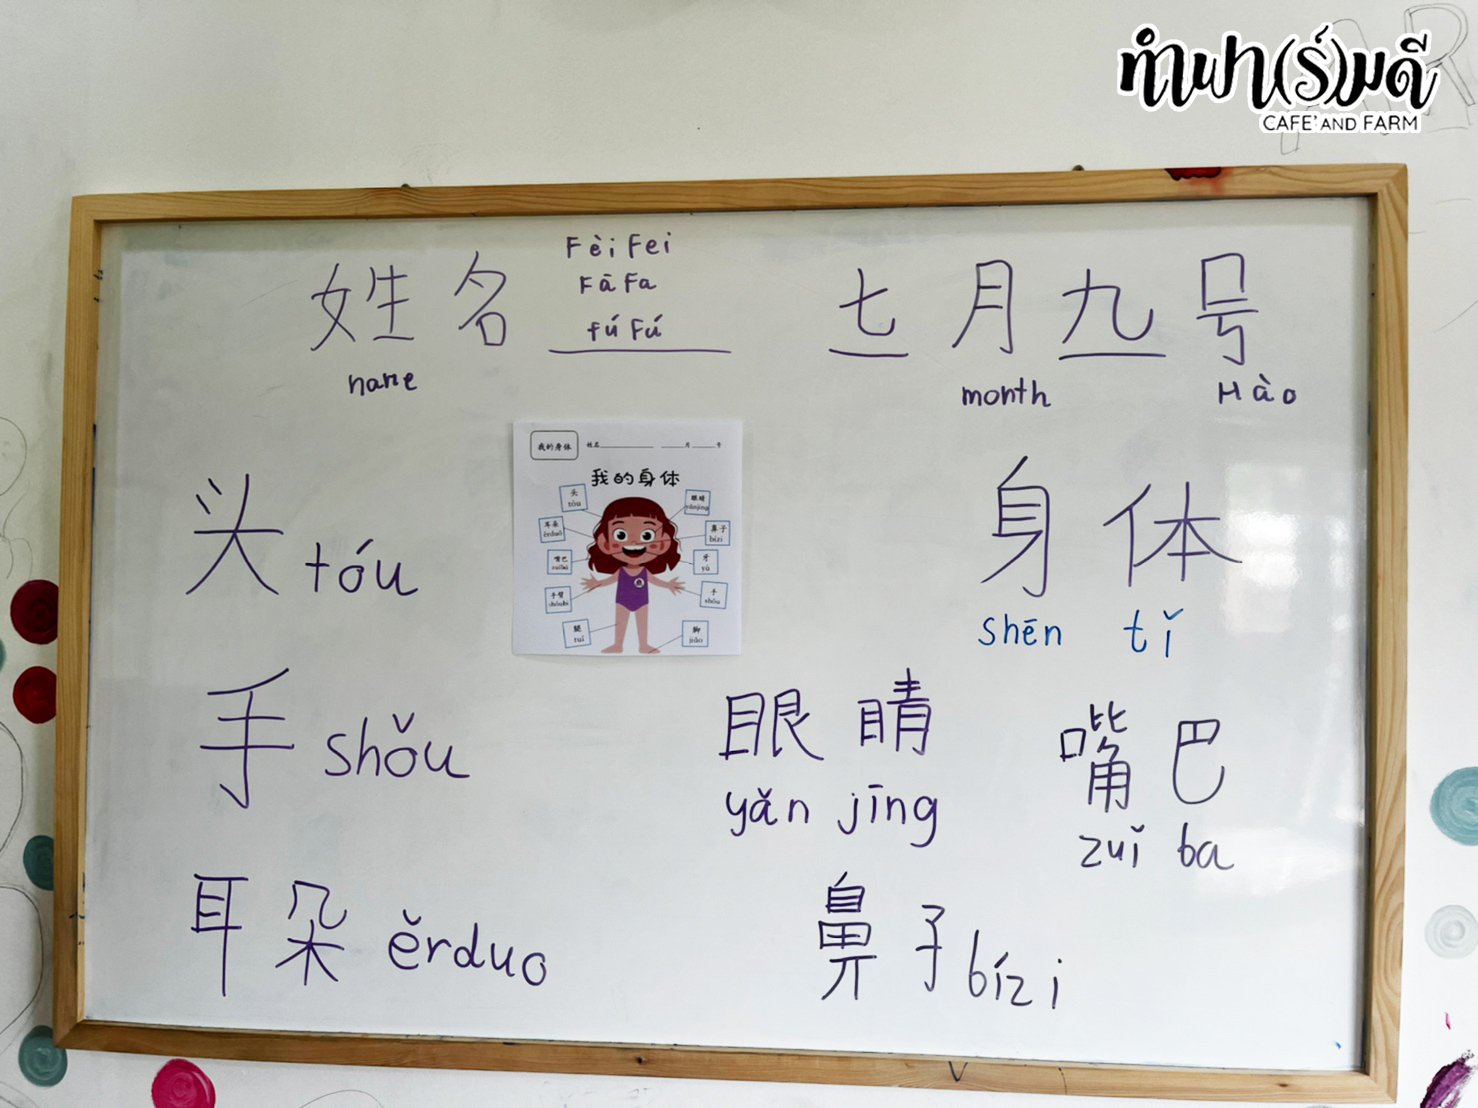 ทำฟา(ร์)มดี
CAFE' AND FARM
姓名
Fèi Fei
Fā Fa
fú Fú
七月九号
name
month
Hào
我的身体
姓名 月 号
我的身体
头
tóu
眼睛
yǎnjīng
耳朵
ěrduō
鼻子
bízi
嘴巴
zuǐbā
牙
yá
手臂
shǒubì
手
shǒu
腿
tuǐ
脚
jiǎo
头 tóu
身体
shēn tǐ
手 shǒu
眼睛
yǎn jīng
嘴巴
zuǐ ba
耳朵 ěrduo
鼻子 bízi